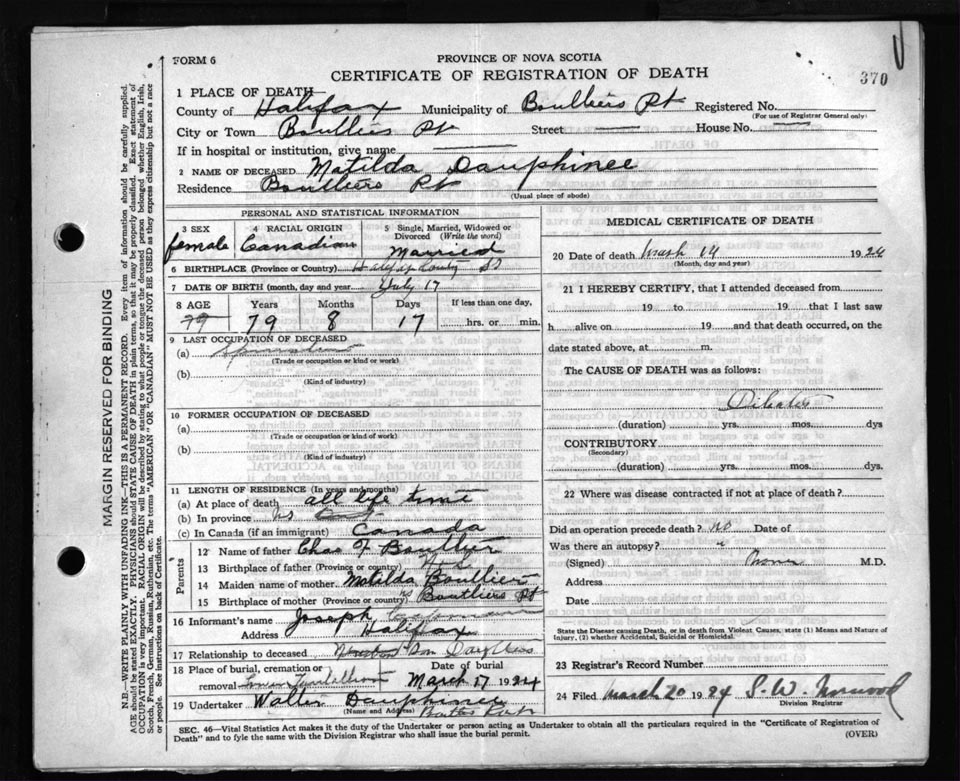 FORM 6
PROVINCE OF NOVA SCOTIA
CERTIFICATE OF REGISTRATION OF DEATH
370
1 PLACE OF DEATH
County of Halifax Municipality of Boutliers Pt Registered No.
(For use of Registrar General only)
City or Town Boutliers Pt Street — House No. —
If in hospital or institution, give name —
2 NAME OF DECEASED Matilda Dauphinee
Residence Boutliers Pt
(Usual place of abode)
PERSONAL AND STATISTICAL INFORMATION
3 SEX 4 RACIAL ORIGIN 5 Single, Married, Widowed or Divorced (Write the word)
female Canadian Married
6 BIRTHPLACE (Province or Country) Halifax County NS
7 DATE OF BIRTH (month, day and year) July 17
8 AGE Years Months Days If less than one day,
79 79 8 17 hrs. or min.
9 LAST OCCUPATION OF DECEASED
(a)
(Trade or occupation or kind of work)
(b)
(Kind of industry)
10 FORMER OCCUPATION OF DECEASED
(a)
(Trade or occupation or kind of work)
(b)
(Kind of industry)
11 LENGTH OF RESIDENCE (In years and months)
(a) At place of death all life time
(b) In province NS
(c) In Canada (if an immigrant) Canada
Parents
12 Name of father Chas Boutlier
13 Birthplace of father (Province or country) N.S.
14 Maiden name of mother Matilda Boutlier
15 Birthplace of mother (Province or country) NS Boutliers Pt
16 Informant's name Joseph
Address Halifax
17 Relationship to deceased Son
18 Place of burial, cremation or removal Date of burial
March 17 1924
19 Undertaker Walter Dauphinee
(Name and Address)
MEDICAL CERTIFICATE OF DEATH
20 Date of death March 14 1924
(Month, day and year)
21 I HEREBY CERTIFY, that I attended deceased from
19 to 19 that I last saw
h alive on 19 and that death occurred, on the
date stated above, at m.
The CAUSE OF DEATH was as follows:
Dibates
(duration) yrs. mos. dys
CONTRIBUTORY
(Secondary)
(duration) yrs. mos. dys.
22 Where was disease contracted if not at place of death?
Did an operation precede death? No Date of
Was there an autopsy?
(Signed) None M.D.
Address
Date
State the Disease causing Death, or in death from Violent Causes, state (1) Means and Nature of Injury, (2) whether Accidental, Suicidal or Homicidal.
23 Registrar's Record Number
24 Filed March 20 1924 S. W.
Division Registrar
SEC. 46—Vital Statistics Act makes it the duty of the Undertaker or person acting as Undertaker to obtain all the particulars required in the "Certificate of Registration of
Death" and to fyle the same with the Division Registrar who shall issue the burial permit. (OVER)
MARGIN RESERVED FOR BINDING
N.B.—WRITE PLAINLY WITH UNFADING INK—THIS IS A PERMANENT RECORD. Every item of information should be carefully supplied.
AGE should be stated EXACTLY. PHYSICIANS should STATE CAUSE OF DEATH in plain terms, so that it may be properly classified. Exact statement of
OCCUPATION is very important. RACIAL ORIGIN will be described by stating to what people or tongue the deceased person belonged whether English, Irish,
Scotch, French, German, Russian, Ruthenian, etc. The terms "AMERICAN" OR "CANADIAN" MUST NOT BE USED as they express citizenship but not a race
or people. See instructions on back of Certificate.